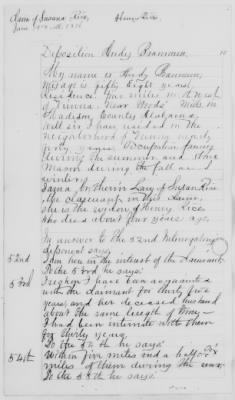 Claim of Susana Rice,
Henry Rice.
Deposition Andy Brannum
My name is Andy Brannum
My age is fifty Eight years
residence five miles North West
of Vienna, near Woods' Mills in
Madison County Alabama
Well sir I have resided in the
neighborhood of Vienna nearly
forty years, Occupation farming
during the summer and Stone
Mason during the fall and
winters
I am a brother in Law of Susan Rice
the claimant in this claim,
she is the widow of Henry Rice
who died about four years ago.
In answer to the 52nd Interrogatory
deponent says
52nd I am here in the interest of the Claimant
To the 53rd he says
53rd I reckon I have been acquainted
with the claimant for thirty five
years, and her deceased husband
about the same length of time
I had been intimate with them
for thirty years.
To the 54th he says
54th Within five miles and a half or six
miles of them during the war.
To the 55th he says.